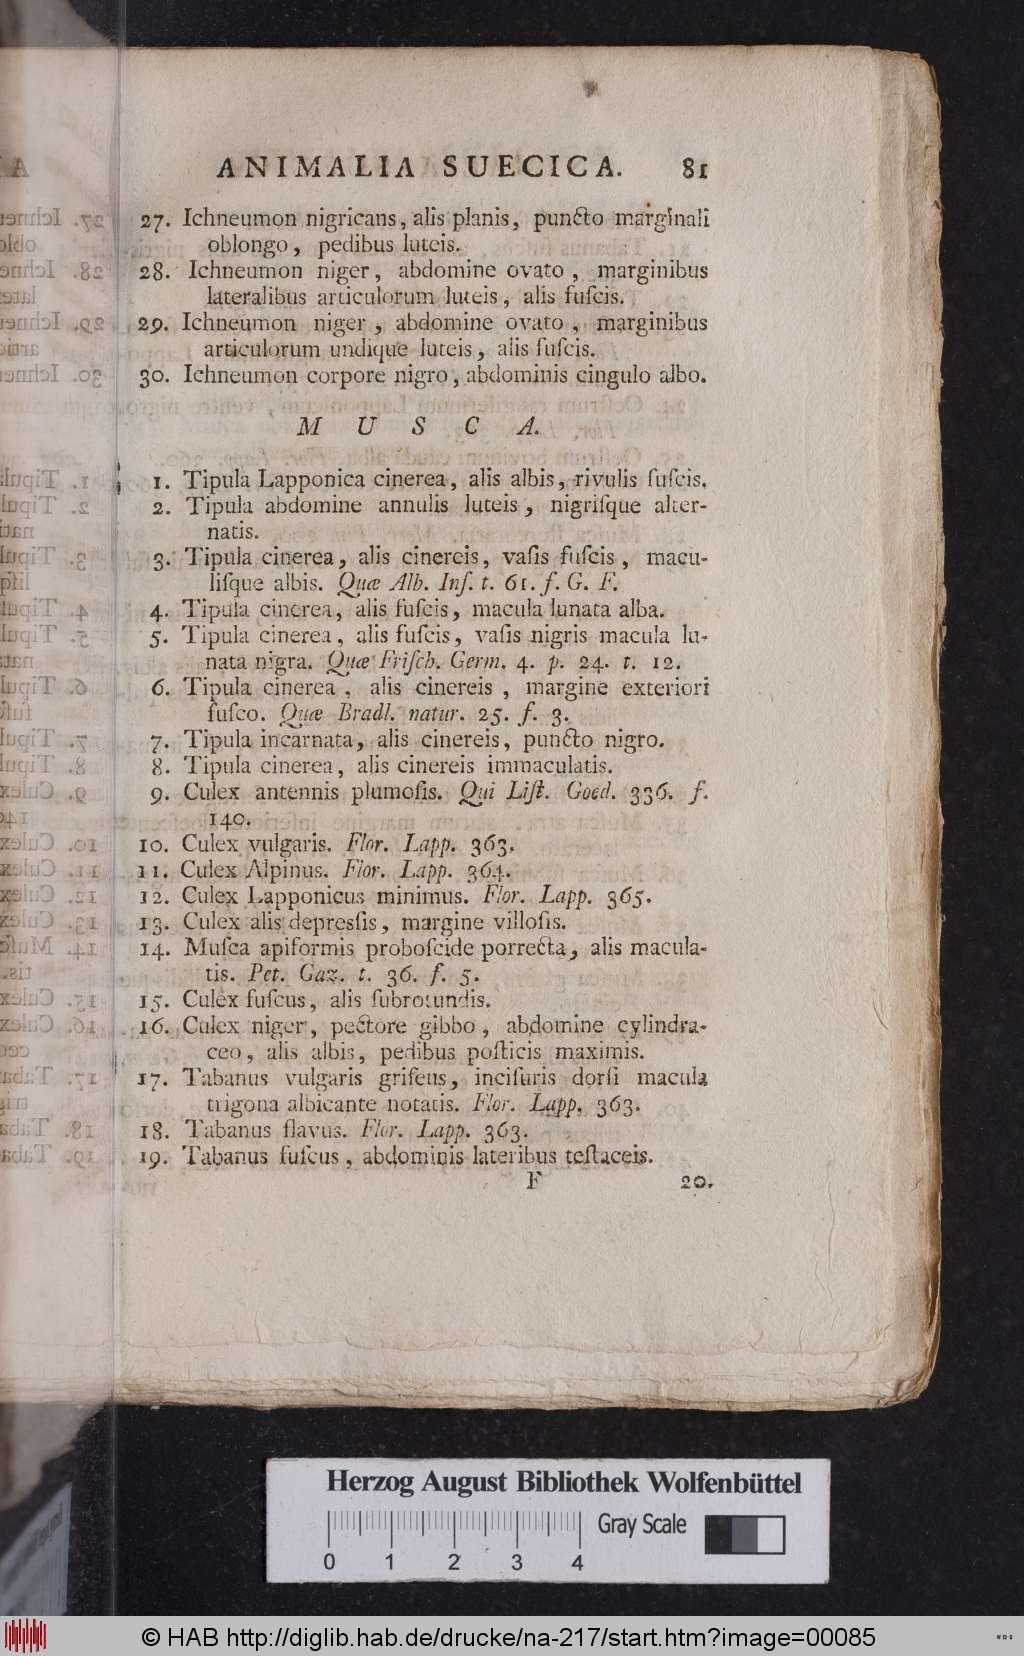 ANIMALIA SUECICA. 81
27. Ichneumon nigricans, alis planis, puncto marginali
oblongo, pedibus luteis.
28. Ichneumon niger, abdomine ovato, marginibus
lateralibus articulorum luteis, alis fuſcis.
29. Ichneumon niger, abdomine ovato, marginibus
articulorum undique luteis, alis fuſcis.
30. Ichneumon corpore nigro, abdominis cingulo albo.
MUSCA.
1. Tipula Lapponica cinerea, alis albis, rivulis fuſcis.
2. Tipula abdomine annulis luteis, nigriſque alter-
natis.
3. Tipula cinerea, alis cinereis, vaſis fuſcis, macu-
liſque albis. Quæ Alb. Inſ. t. 61. f. G. F.
4. Tipula cinerea, alis fuſcis, macula lunata alba.
5. Tipula cinerea, alis fuſcis, vaſis nigris macula lu-
nata nigra. Quæ Friſch. Germ. 4. p. 24. t. 12.
6. Tipula cinerea, alis cinereis, margine exteriori
fuſco. Quæ Bradl. natur. 25. f. 3.
7. Tipula incarnata, alis cinereis, puncto nigro.
8. Tipula cinerea, alis cinereis immaculatis.
9. Culex antennis plumoſis. Qui Liſt. Goed. 336. f.
140.
10. Culex vulgaris. Flor. Lapp. 363.
11. Culex Alpinus. Flor. Lapp. 364.
12. Culex Lapponicus minimus. Flor. Lapp. 365.
13. Culex alis depresſis, margine villoſis.
14. Muſca apiformis proboſcide porrecta, alis macula-
tis. Pet. Gaz. t. 36. f. 5.
15. Culex fuſcus, alis ſubrotundis.
16. Culex niger, pectore gibbo, abdomine cylindra-
ceo, alis albis, pedibus poſticis maximis.
17. Tabanus vulgaris griſeus, inciſuris dorſi macula
trigona albicante notatis. Flor. Lapp. 363.
18. Tabanus flavus. Flor. Lapp. 363.
19. Tabanus fuſcus, abdominis lateribus teſtaceis.
F 20.
Herzog August Bibliothek Wolfenbüttel
Gray Scale
0 1 2 3 4
© HAB http://diglib.hab.de/drucke/na-217/start.htm?image=00085